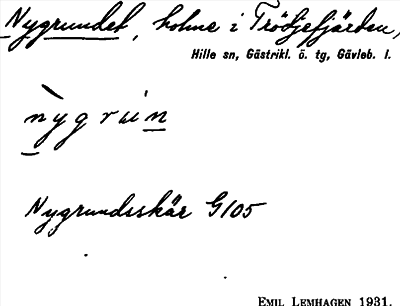 Nygrundet, holme i Trödjefjärden,
Hille sn, Gästrikl. ö. tg, Gävleb. l.
nygrun
Nygrundsskär G105
Emil Lemhagen 1931.